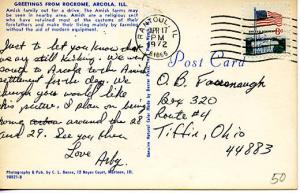 GREETINGS FROM ROCKOME, ARCOLA, ILL.
Amish family out for a drive. The Amish farms may
be seen in nearby area. Amish are a religious sect
who have retained most of the customs of their
forefathers and make their living mainly by farming
without the aid of modern equipment.
Just to let you know that
we are still kicking. We went
south to Arcola to the Amish
settlement for the day. We
thought you would like
this picture. I plan on being
home around the 28
and 29. See you then
Love
Arby
Photography & Pub. by C. L. Bence, 12 Noyes Court, Mattoon, Ill.
98821-B
RANTOUL, IL
APR 17
PM
1972
61866
Post Card
O.B.
Box 320
Route #4
Tiffin, Ohio
44883
50